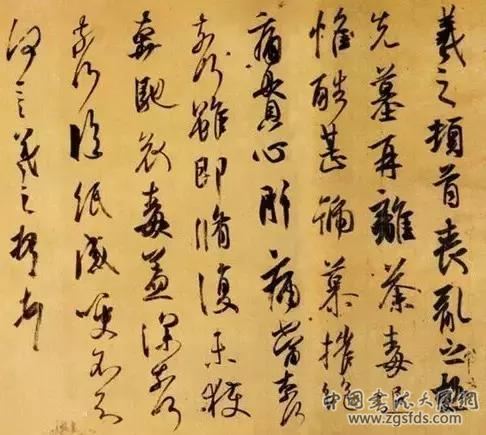 羲之頓首喪亂之極
先墓再離荼毒追
惟酷甚號慕摧絕
痛貫心肝痛當奈何
奈何雖即脩復未獲
奔馳哀毒益深奈何
奈何臨紙感哽不知
何言羲之頓首
中国书法大师网
www.zgsfds.com